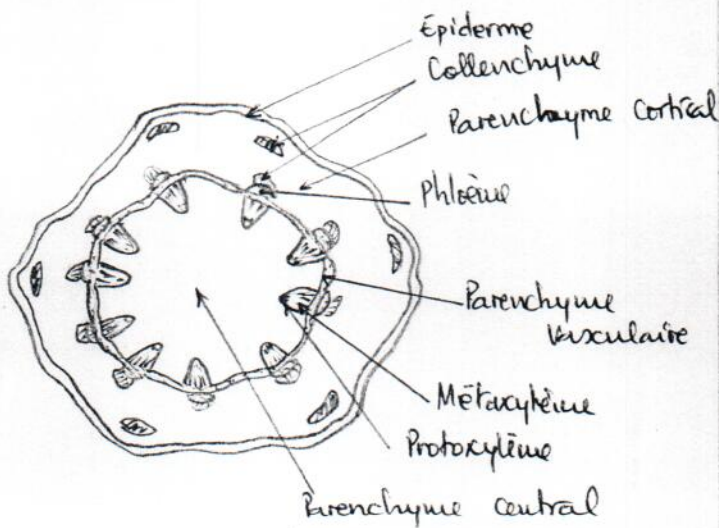 Épiderme
Collenchyme
Parenchyme Cortical
Phloème
Parenchyme
Vasculaire
Métaxylème
Protoxylème
Parenchyme central